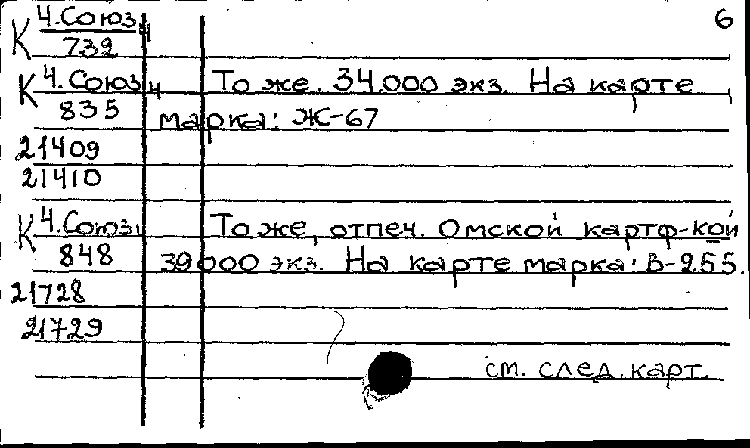 6
К 4.Союз.4
732
К 4.Союз.4 То же. 34.000 экз. На карте
835 марка: Ж-67
21409
21410
К 4.Союз. То же, отпеч. Омской картф-кой
848 39000 экз. На карте марка: В-255.
21728
21729
см. след. карт.